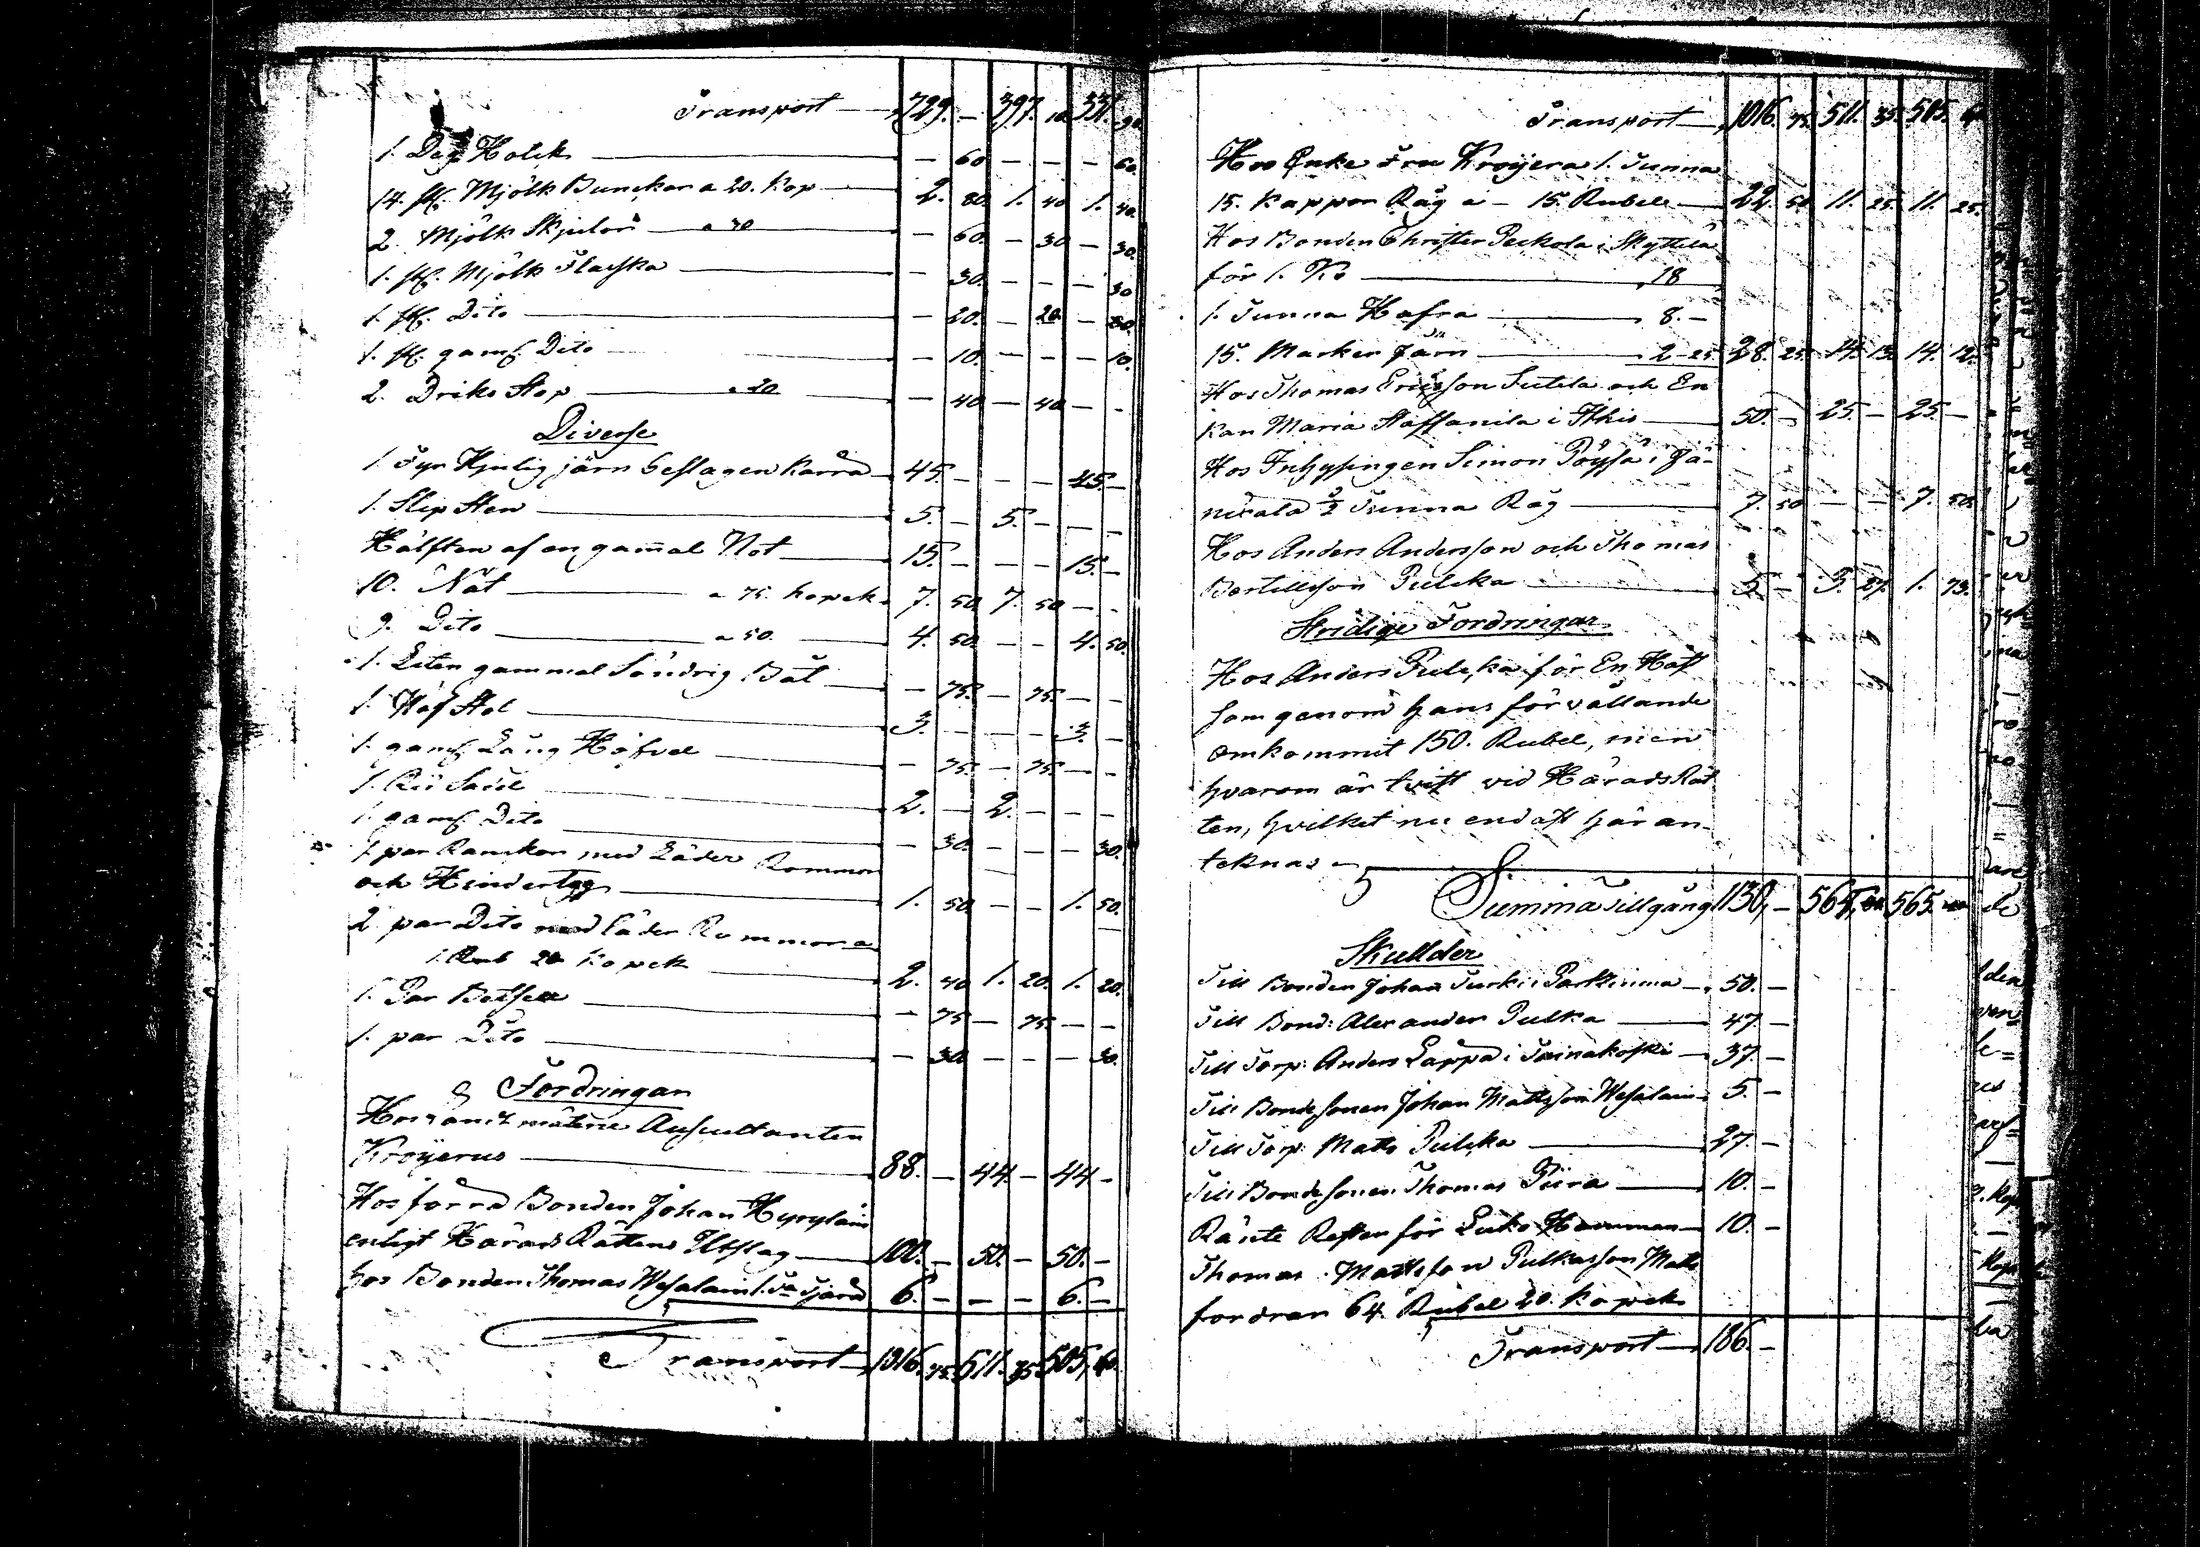 Transport 729. – 397. 10. 331. 90.
1. Deg Holck – 60 – – – 60.
14. st. Mjölk Bunckar a 20. Kop 2. 80. 1. 40 1. 40.
2. Mjölk Skjulor a 30 – 60. – 30 – 30.
1. st. Mjölk Flaska – 30. – – – 30
1. st. Dito – 20. – 20. –
1. st. gaml. Dito – 10. – – – 10.
2. Driks Stop a 20 – 40 – 40 – –
Diverse
1. Fyr Hjulig järn beslagen Karra 45. – – – 45. –
1. Slip Sten 5. – 5. – – –
Hälften af en gammal Not 15. – – – 15. –
10. Nät a 75. kopek. 7. 50 7. 50 – –
9. Dito a 50. 4. 50. – – 4. 50.
1. Liten gammal Söndrig Båt – 75. – 75. – –
1. Häf Stol 3. – – – 3. –
1. gaml. Lång Höfvel – 75. – 75. – –
1. Rii Såll 2. – 2. – – –
1. gaml. Dito – 30. – – – 30.
1. par Rankor med Läder Rommor
och Hindertyg 1. 50. – – 1. 50.
2. par Dito med Läder Rommor a
1. Rub 20 Kopek 2. 40 1. 20. 1. 20.
1. Par Betsell – 75 – 75. – –
1. par Dito – 30. – – – 30.
Fordringar
Hos Auscultanten
Kröijerus 88. – 44 – 44 –
Hos förra Bonden Johan Hyryläin
enligt Härads Rättens Utslag 100. – 50. – 50. –
hos Bonden Thomas Wesalain 1. Ta Tjära 6. – – – 6. –
Transport 1016. 75. 511. 35. 505. 40.
Transport 1016. 75. 511. 35. 505. 40
Hos Enke Fru Kroijera 1. Tunna
15. Kappor Råg a – 15. Rubel 22. 50. 11. 25. 11. 25.
Hos Bonden Christer Peckola i Skyttelä
för 1. Ko 18
1. Tunna Hafra 8. –
15. Marker Järn 2 25. 28. 25. 14. 13. 14. 12.
Hos Thomas Ericsson Sutela och En
kan Maria Staffanila i Ihkis 50. – 25. – 25. –
Hos Inhysingen Simon Pöysä i Jä-
nixala ½ Tunna Råg 7. 50 – – 7. 50.
Hos Anders Andersson och Thomas
Bertillsson Pulcka 5. – 3. 27. 1. 73.
Stridige Fordringar
Hos Anders Pulcka för En Häst
som genom hans förvållande
omkommit 150. Rubel, men
hvarom är tvist vid Härads Rät
ten, hvilket nu endast här an-
teknas
Summa Tillgång 1130. – 564. 565.
Skullder
Till Bonden Johan Turki i Parkinma 50. –
Till Bond: Alexander Pulka 47. –
Till Torp: Anders Lappa i Tainakoski 37. –
Till Bondesonen Johan Mattsson Wesalain 5. –
Till Torp: Matts Pulcka 27. –
Till Bondesonen Thomas Piira 10. –
Ränte Resten för 10. –
Thomas Mattsson Pulkasson Matts
fordran 64. Rubel 20. Kopek
Transport 186. –